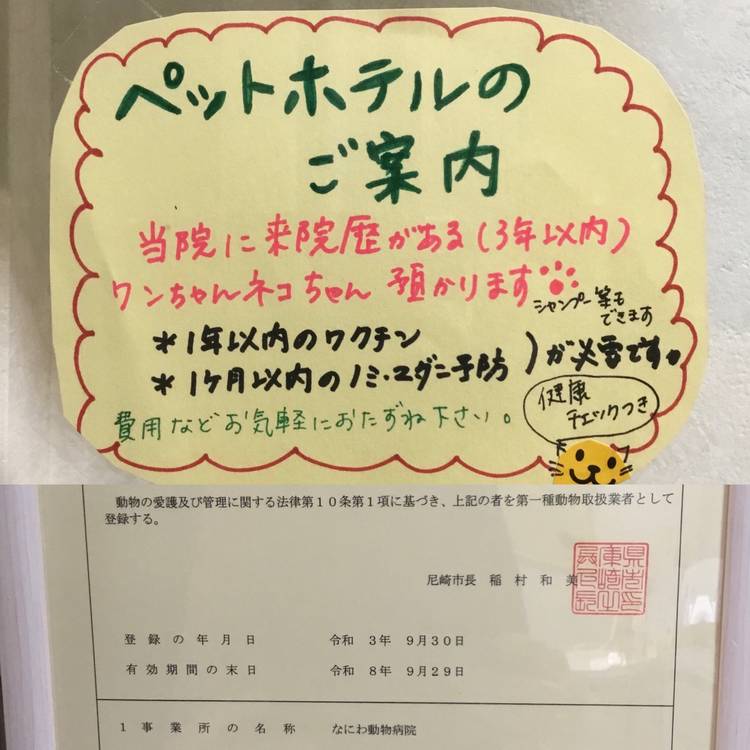 ペットホテルの
ご案内
当院に来院歴がある(3年以内)
ワンちゃんネコちゃん 預かります
シャンプー等も
できます
*1年以内のワクチン
*1ヶ月以内のノミ・マダニ予防 )が必要です。
健康
チェックつき
費用などお気軽におたずね下さい。
動物の愛護及び管理に関する法律第10条第1項に基づき、上記の者を第一種動物取扱業者として
登録する。
尼崎市長 稲村和美
登録の年月日 令和 3年 9月30日
有効期間の末日 令和 8年 9月29日
1 事業所の名称 なにわ動物病院